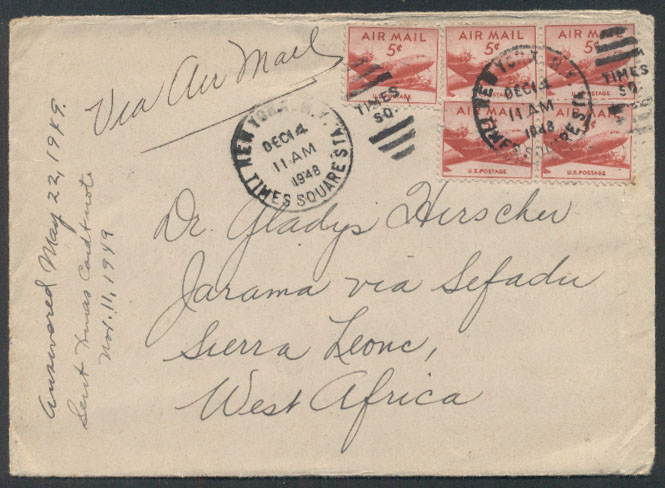 Via Air Mail
AIR MAIL
5¢
AIR MAIL
5¢
AIR MAIL
5¢
U.S. POSTAGE
U.S. POSTAGE
NEW YORK, N.Y.
DEC 14
11 AM
1948
TIMES SQUARE STA.
TIMES
SQ.
NEW YORK, N.Y.
DEC 14
11 AM
1948
TIMES SQUARE STA.
TIMES
SQ.
Dr. Gladys Herscher
Jarama via Sefadu
Sierra Leone,
West Africa
Answered May 22, 1949.
Sent Xmas Card & note
Nov. 11, 1949